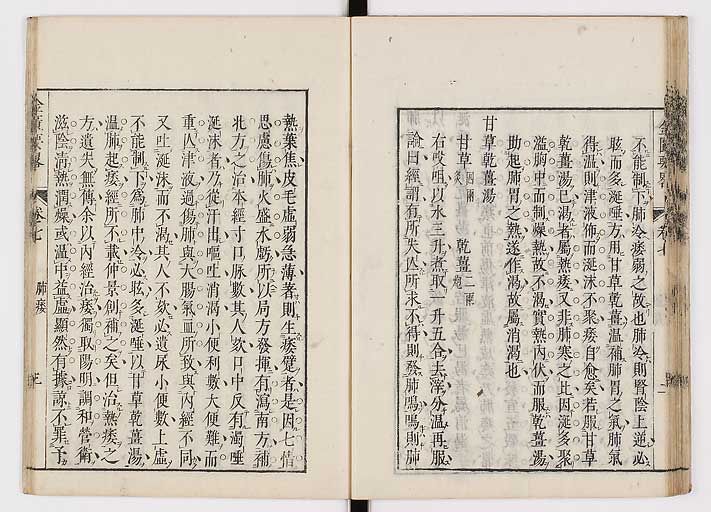 不能制下肺冷痿弱之故也肺冷則腎陰上逆必
眩而多涎唾方用甘草乾薑温補肺胃之氣肺氣
得温則津液佈而涎沫不聚痿自愈矣若服甘草
乾薑湯已渴者屬熱痿又非肺寒之比因涎多聚
溢胸中而制燥熱故不渴實熱内伏而服乾薑湯
助起肺胃之熱遂作渴故屬消渴也
甘草乾薑湯
甘草 四兩 乾薑 二兩
右㕮咀以水三升煮取一升五合去滓分温再服
論曰經謂有所失亾所求不得則發肺鳴鳴則肺
熱葉焦皮毛虛弱急薄著則生痿躄者是因七情
思慮傷肺火盛水虧所以局方發揮有瀉南方補
北方之治本經寸口脉數其人欬口中反有濁唾
涎沫者乃從汗出嘔吐消渴小便利數大便難而
重亾津液過傷肺與大腸氣血所致與内經不同
又吐涎沫而不渴其人不欬必遺尿小便數上虛
不能制下爲肺中冷必眩多涎唾以甘草乾薑湯
温肺起痿經所不載仲景創補之矣但治熱痿之
方遺失無傳余以内經治痿獨取陽明調和營衛
滋陰清熱潤燥或温中益虛顯然有據諒不罪予
卷七 肺痿